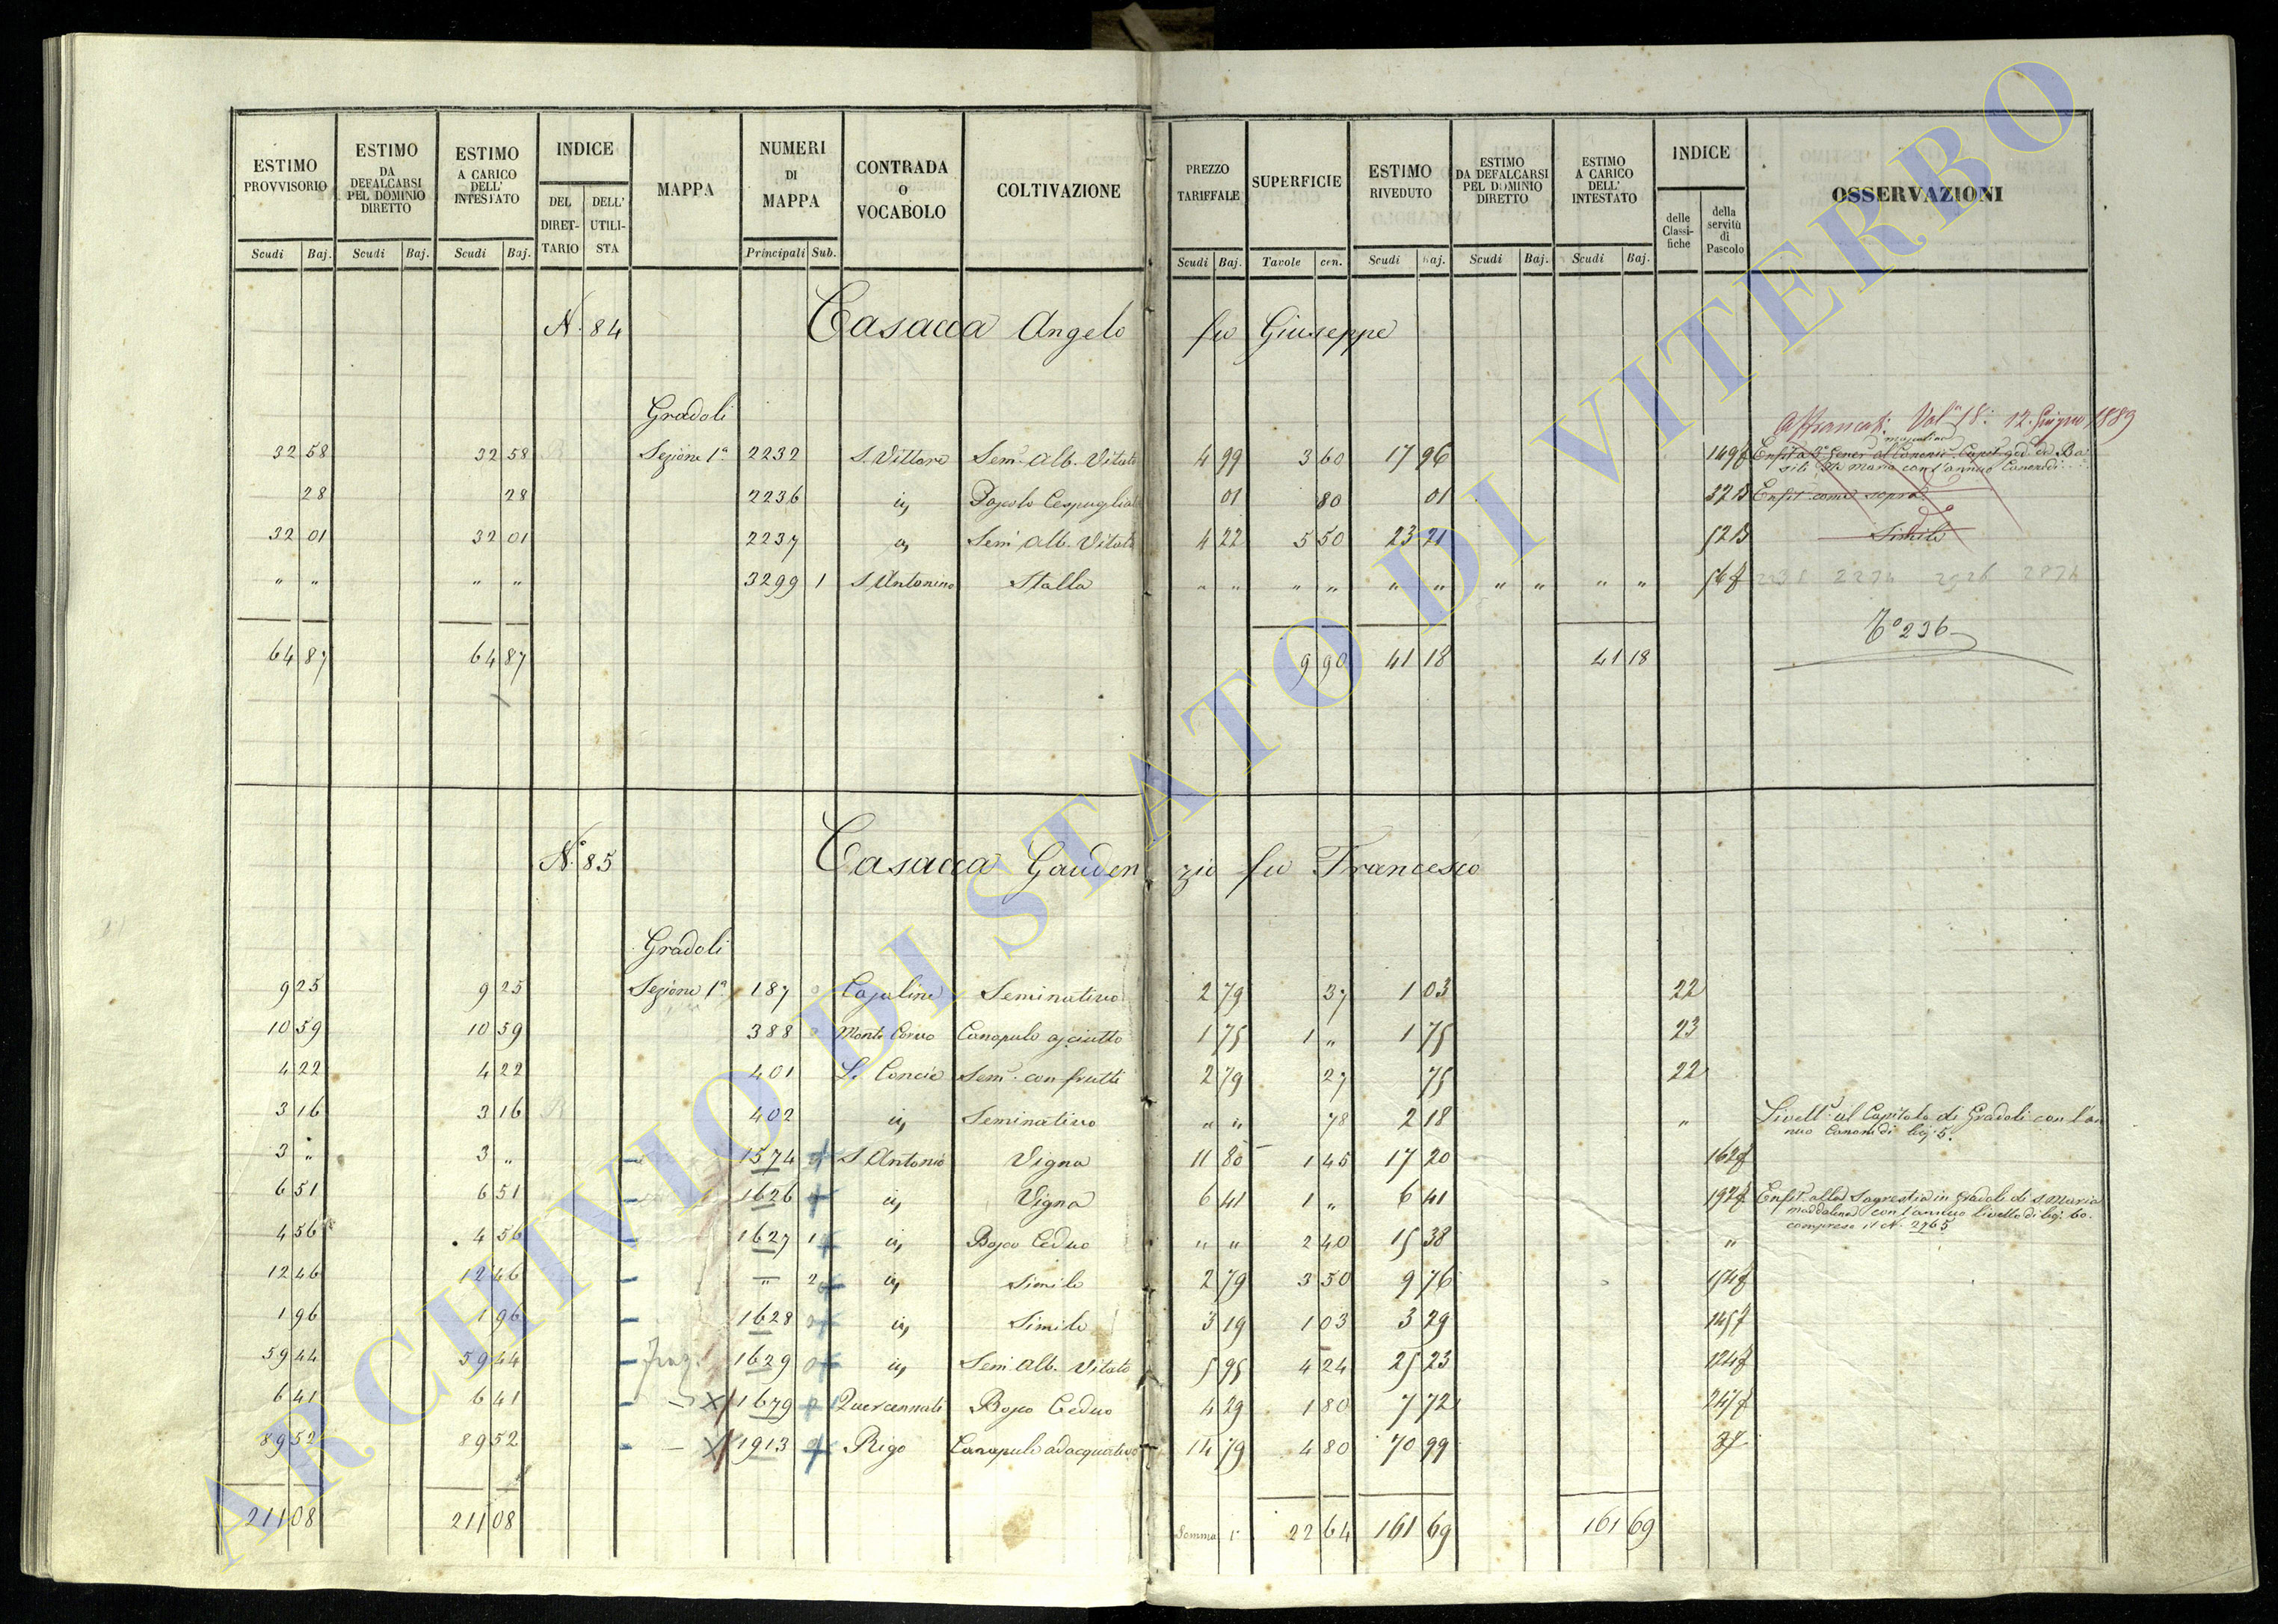 ESTIMO PROVVISORIO | ESTIMO DA DEFALCARSI PEL DOMINIO DIRETTO | ESTIMO A CARICO DELL' INTESTATO | INDICE | MAPPA | NUMERI DI MAPPA | CONTRADA O VOCABOLO | COLTIVAZIONE | PREZZO TARIFFALE | SUPERFICIE | ESTIMO RIVEDUTO | ESTIMO DA DEFALCARSI PEL DOMINIO DIRETTO | ESTIMO A CARICO DELL' INTESTATO | INDICE | OSSERVAZIONI
DEL DIRETTARIO | DELL' UTILISTA | delle Classifiche | della servitù di Pascolo
Scudi | Baj. | Scudi | Baj. | Scudi | Baj. | Principali | Sub. | Scudi | Baj. | Tavole | cen. | Scudi | Baj. | Scudi | Baj. | Scudi | Baj.
N. 84 Casacca Angelo fu Giuseppe
Gradoli
Affrancat. Vol. 18. 12 Giugno 1889
32 58 | 32 58 | Sezione 1ª | 2232 | S. Vittore | Sem. Alb. Vitato | 4 99 | 3 60 | 17 96 | 149
28 | 28 | 2236 | id | Pascolo Cespugliato | 01 | 80 | 01 | 32 | Enfit. come sopra
32 01 | 32 01 | 2237 | id | Sem. Alb. Vitato | 4 22 | 5 50 | 23 21 | 52 | Simile
" " | " " | 3299 | 1 | S. Antonino | Stalla | " " | " " | " " | " " | " " | 56
Tº 236
64 87 | 64 87 | 9 90 | 41 18 | 41 18
N. 85 Casacca Gaudenzio fu Francesco
Gradoli
9 25 | 9 25 | Sezione 1ª | 187 | Cajaline | Seminativo | 2 79 | 37 | 1 03 | 22
10 59 | 10 59 | 388 | Monte Corvo | Canapulo asciutto | 1 75 | 1 " | 1 75 | 23
4 22 | 4 22 | 401 | Le Concie | Sem. con frutti | 2 79 | 27 | 75 | 22
3 16 | 3 16 | 402 | id | Seminativo | " " | 78 | 2 18 | " | Livell. al Capitolo di Gradoli con l'an
nuo Canone di baj. 5.
3 " | 3 " | 1574 | S. Antonio | Vigna | 11 80 | 1 45 | 17 20 | 162
6 51 | 6 51 | 1626 | id | Vigna | 6 41 | 1 " | 6 41 | 192 | Enfit. alla Sagrestia in Gradoli di S. Maria
Maddalena con l'annuo livello di baj. 60.
compreso il N. 2765
4 56 | 4 56 | 1627 | 1 | id | Bosco Ceduo | " " | 2 40 | 15 38 | "
12 46 | 12 46 | " | 2 | id | Simile | 2 79 | 3 50 | 9 76 | 154
1 96 | 1 96 | 1628 | id | Simile | 3 19 | 1 03 | 3 29 | 145
59 44 | 59 44 | 1629 | id | Sem. Alb. Vitato | 5 95 | 4 24 | 25 23 | 124
6 41 | 6 41 | 1679 | Quercennali | Bosco Ceduo | 4 29 | 1 80 | 7 72 | 247
89 52 | 89 52 | 1913 | Rigo | Canapulo adacquativo | 14 79 | 4 80 | 70 99
211 08 | 211 08 | Somma | 22 64 | 161 69 | 161 69
ARCHIVIO DI STATO DI VITERBO